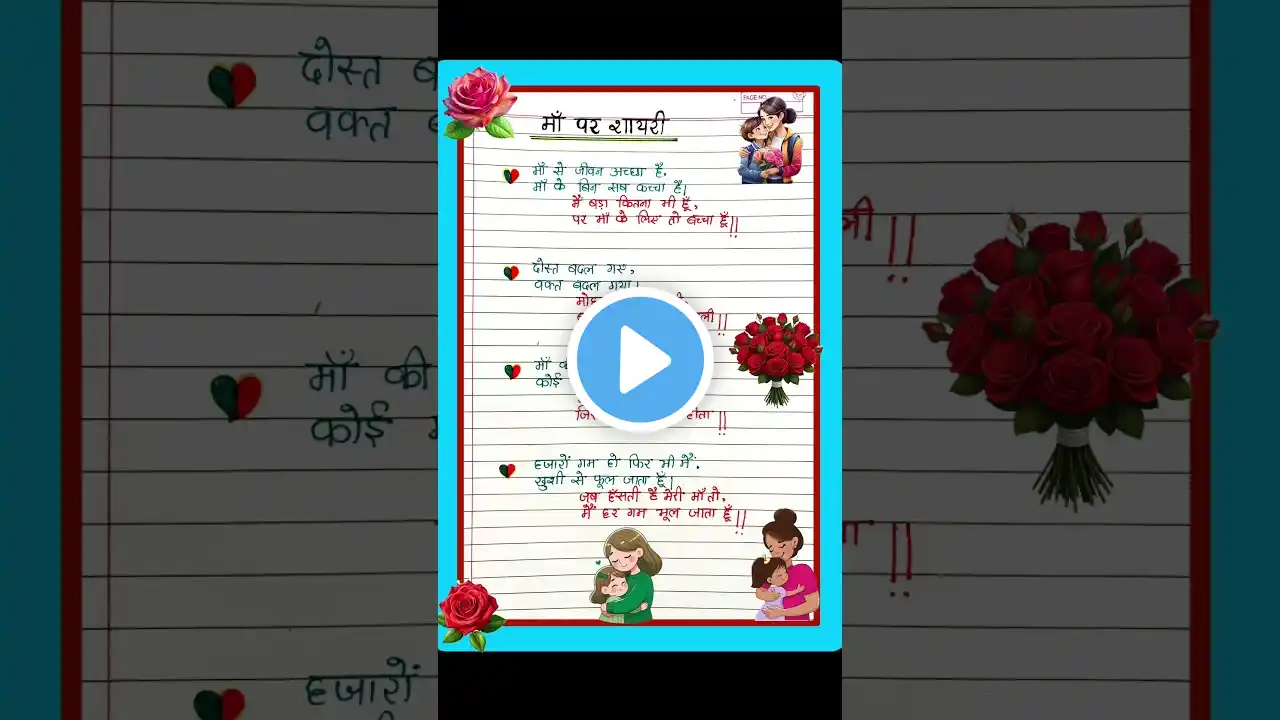 PAGE NO.
माँ पर शायरी
माँ से जीवन अच्छा है,
माँ के बिन सब कच्चा है।
मैं बड़ा कितना भी हूँ,
पर माँ के लिए तो बच्चा हूँ!!
दोस्त बदल गए,
वक्त बदल गया।
ली !!
माँ
कोई
होता !!
हजारों गम हो फिर भी मैं,
खुशी से फूल जाता हूँ।
जब हँसती है मेरी माँ तो,
मैं हर गम भूल जाता हूँ!!
दोस्त
वक्त
माँ की
कोई
हजारों